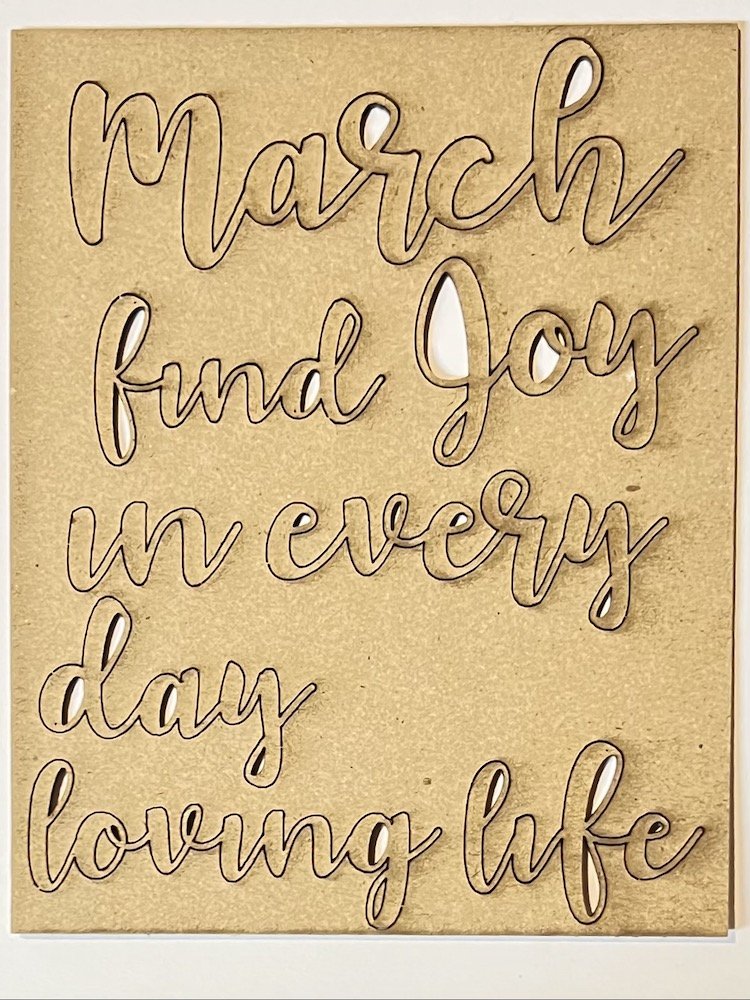 March
find Joy
in every
day
loving life